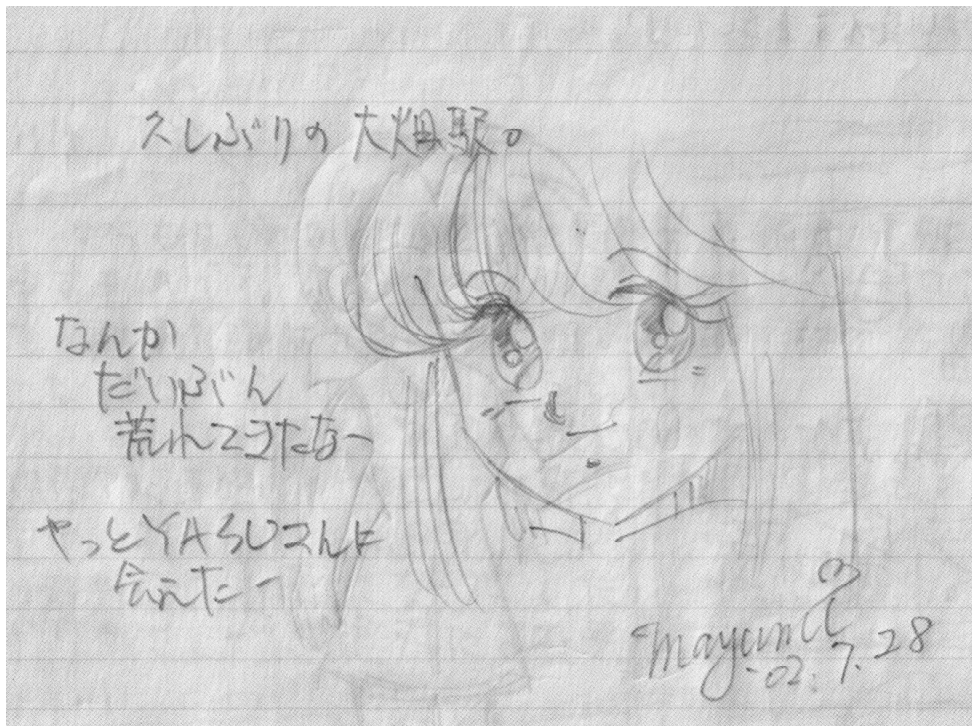 久しぶりの大畑駅。
なんか
だいぶん
荒れてきたなー
やっとYASUさんに
会えたー
mayumi
'02.7.28